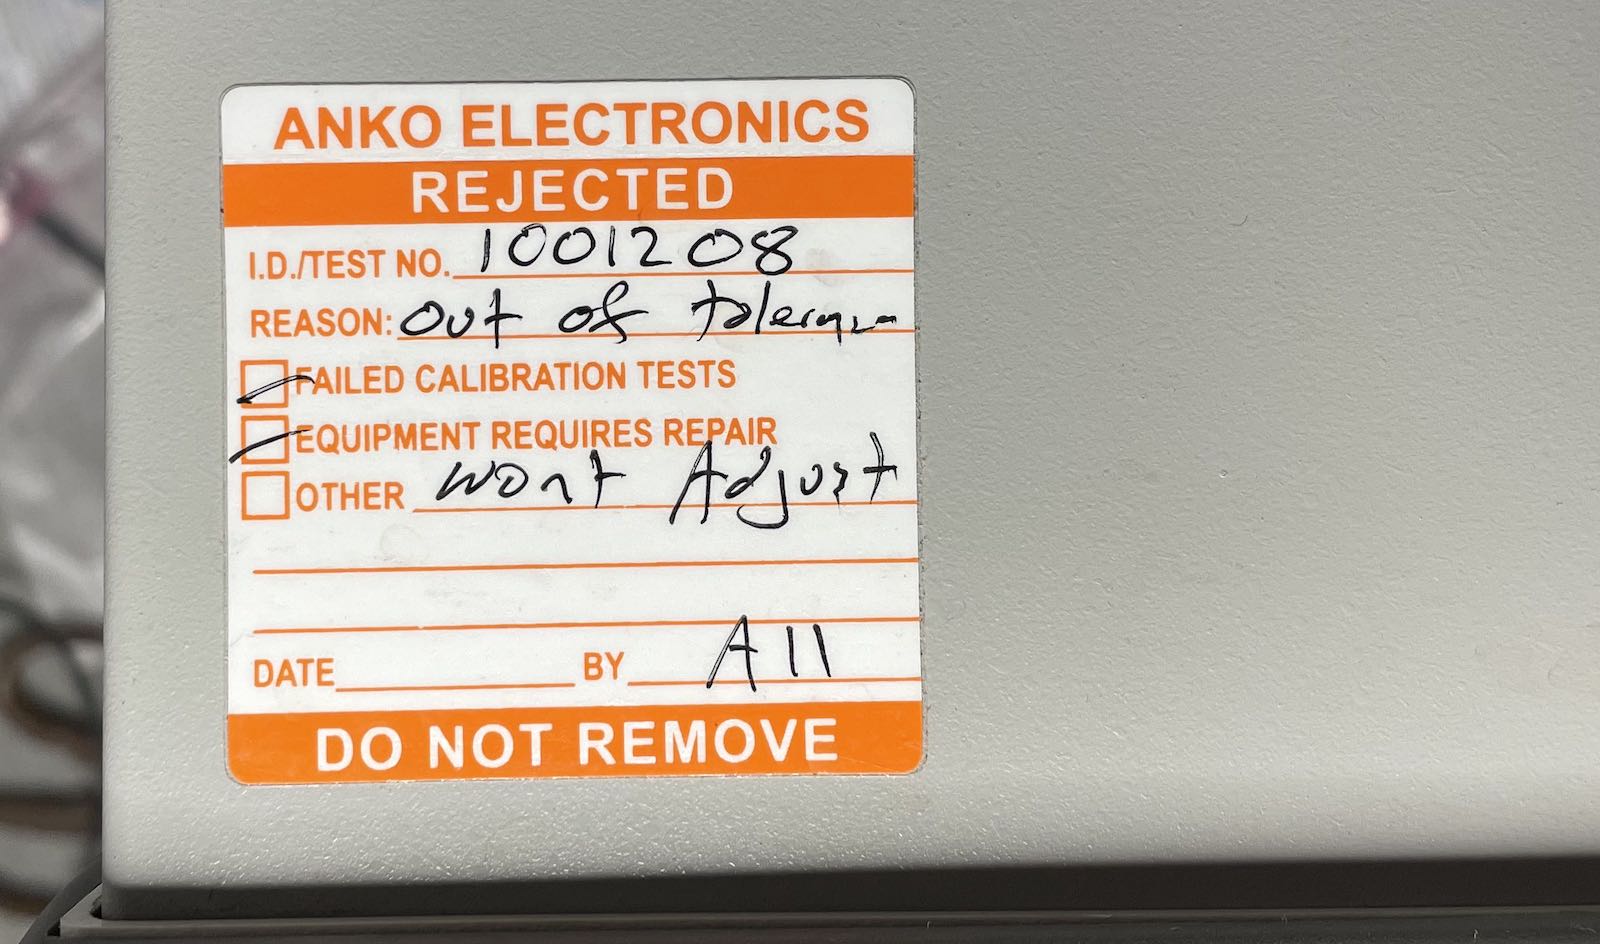 ANKO ELECTRONICS
REJECTED
I.D./TEST NO. 1001208
REASON: out of
FAILED CALIBRATION TESTS
EQUIPMENT REQUIRES REPAIR
OTHER wont Adjust
DATE BY A11
DO NOT REMOVE